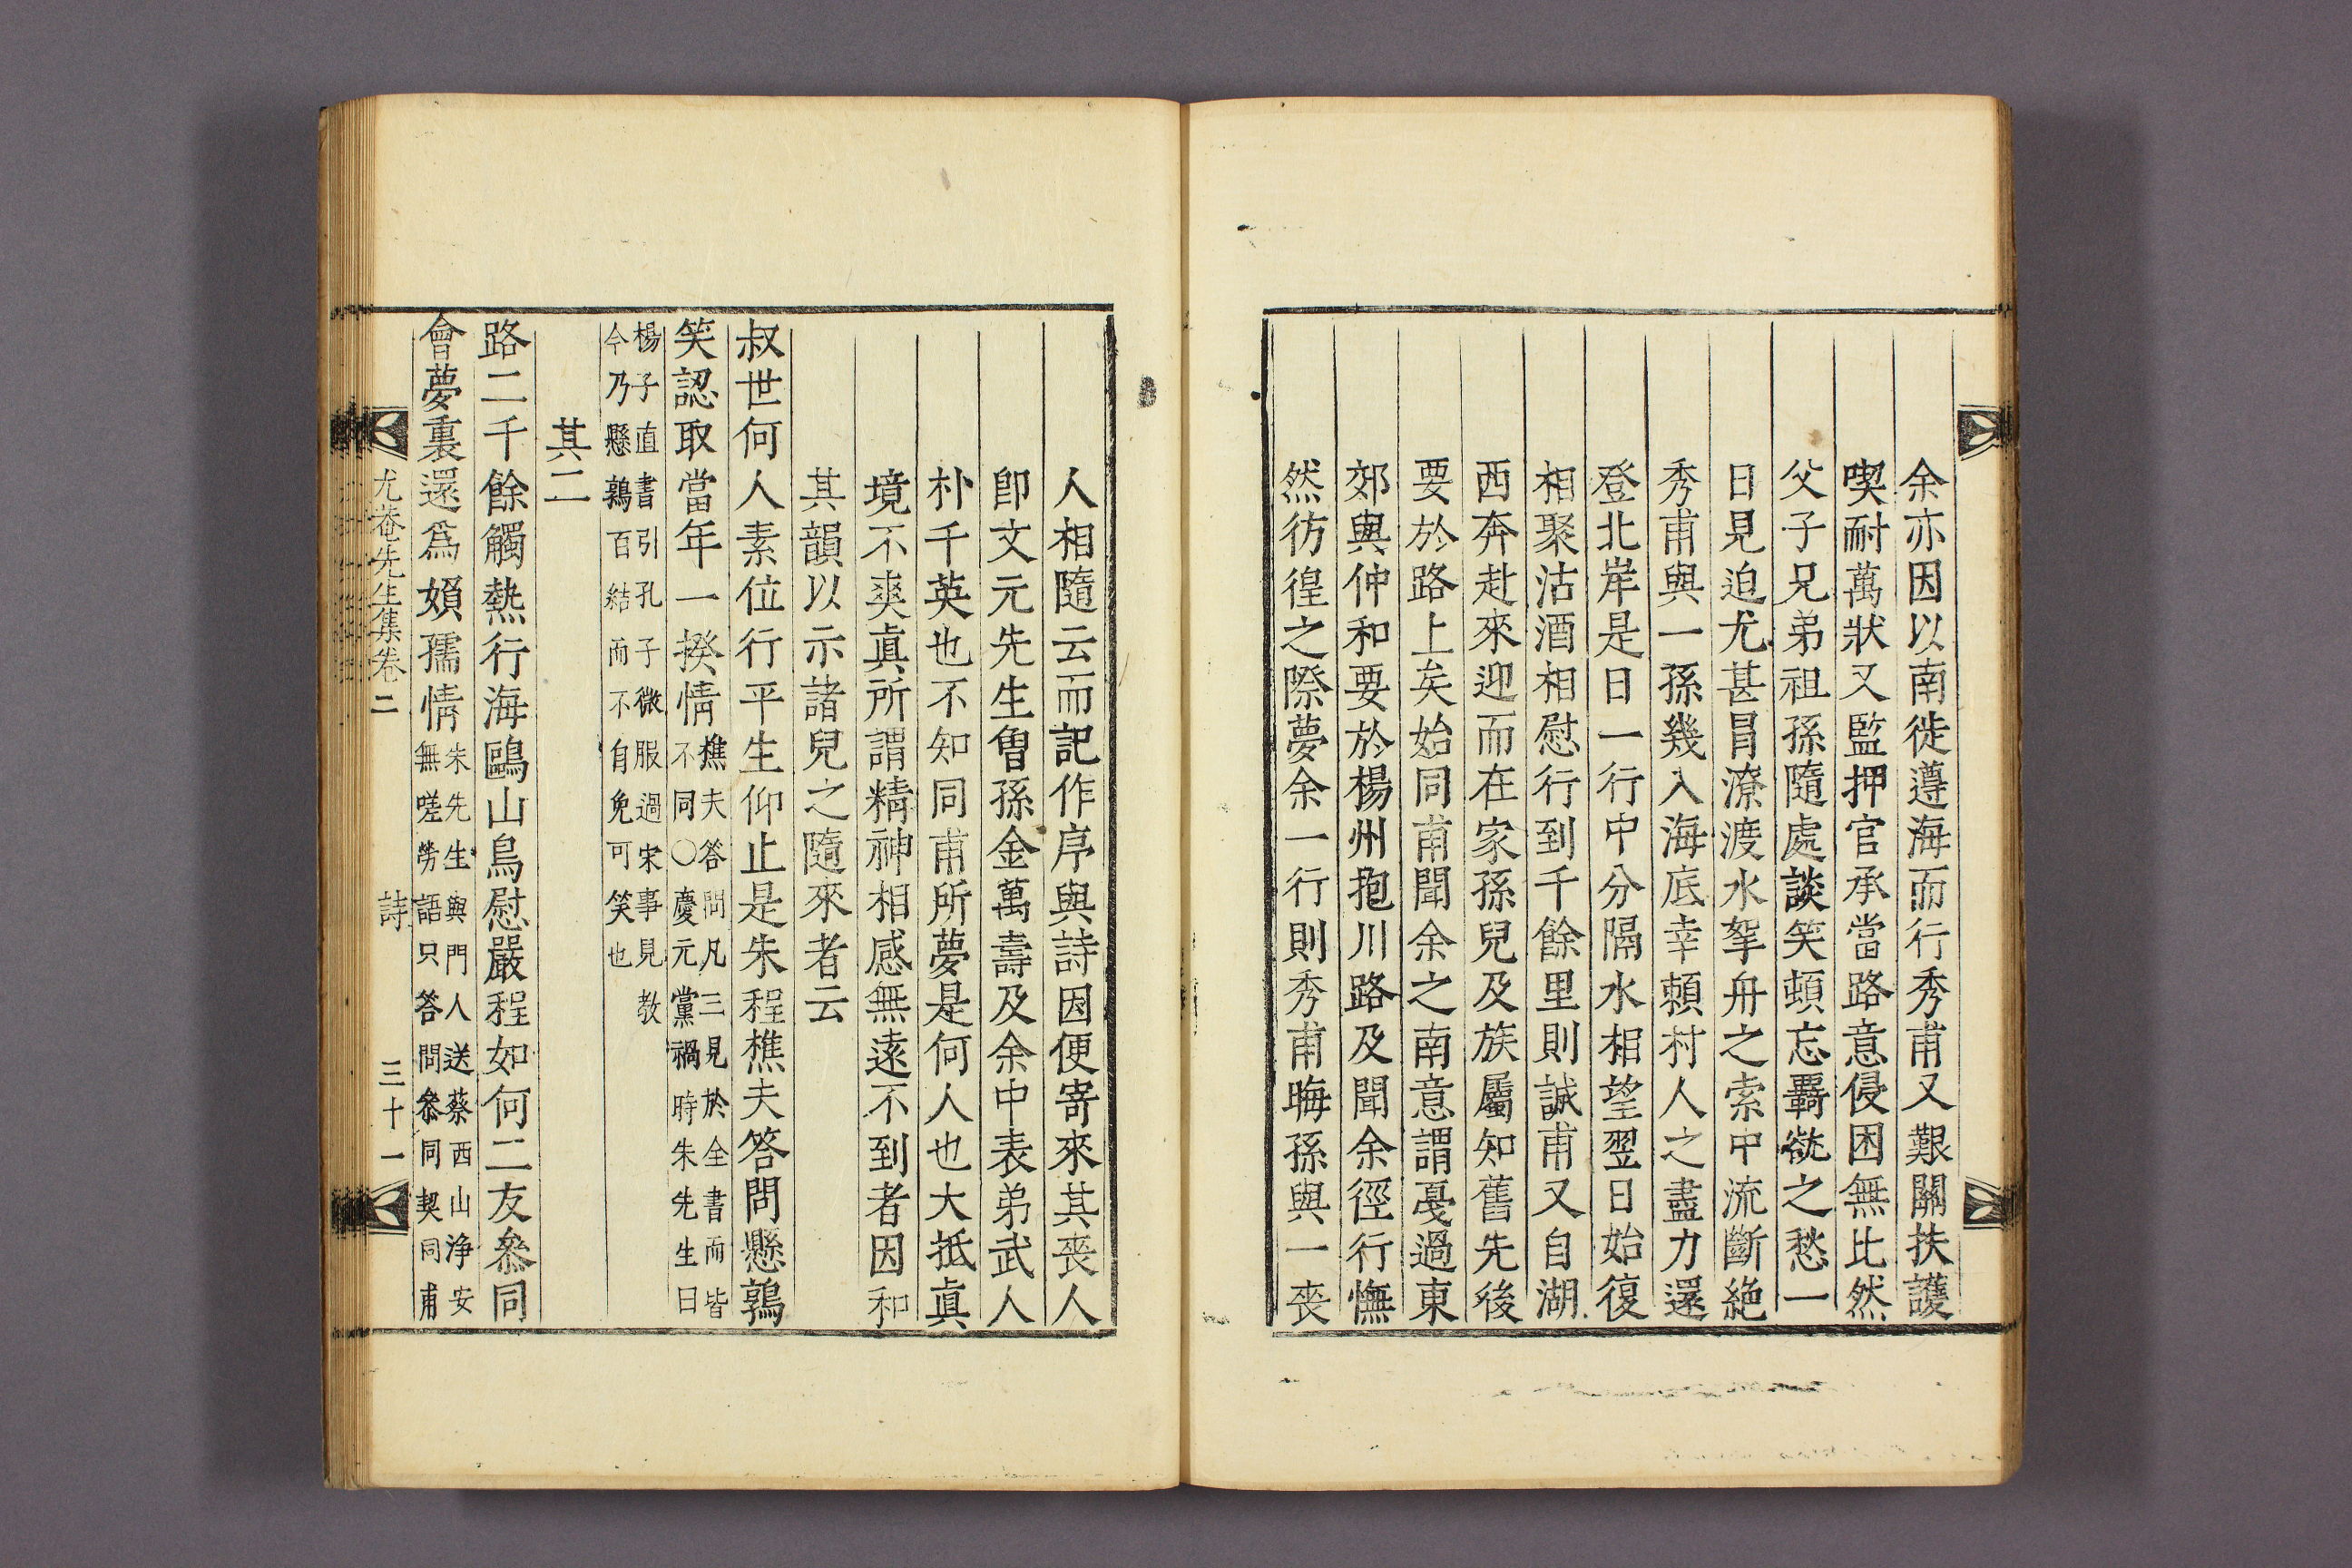 余亦因以南徙遵海而行秀甫又艱關扶護
喫耐萬狀又監押官承當路意侵困無比然
父子兄弟祖孫隨處談笑頓忘覊毵之愁一
日見迫尤甚冒潦渡水挐舟之索中流斷絶
秀甫與一孫幾入海底幸賴村人之盡力還
登北岸是日一行中分隔水相望翌日始復
相聚沽酒相慰行到千餘里則誠甫又自湖
西奔赴來迎而在家孫兒及族屬知舊先後
要於路上矣始同甫聞余之南意謂憂過東
郊與仲和要於楊州抱川路及聞余徑行憮
然彷徨之際夢余一行則秀甫晦孫與一喪
人相隨云而記作序與詩因便寄來其喪人
卽文元先生曾孫金萬壽及余中表弟武人
朴千英也不知同甫所夢是何人也大抵眞
境不爽眞所謂精神相感無遠不到者因和
其韻以示諸兒之隨來者云
叔世何人素位行平生仰止是朱程樵夫答問懸鶉
笑認取當年一揆情
樵夫答問凡三見於全書而皆
不同○慶元黨禍時朱先生曰
楊子直書引孔子微服過宋事見敎
今乃懸鶉百結而不自免可笑也
其二
路二千餘觸熱行海鷗山鳥慰嚴程如何二友叅同
會夢裏還爲嬬孺情
朱先生與門人送蔡西山淨安
無嗟勞語只答問叅同契同甫
尤菴先生集卷二
詩
三十一